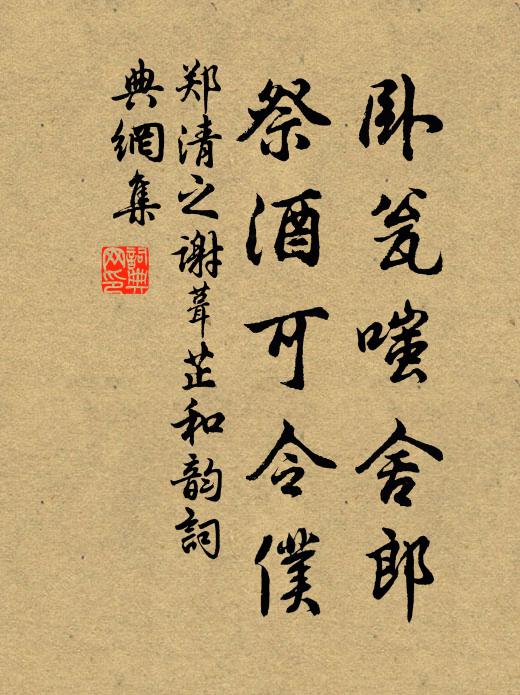 卧瓮嗤舍郎
祭酒可令僕
郑清之谢葺芷和韵詞
典網集
詞典网印